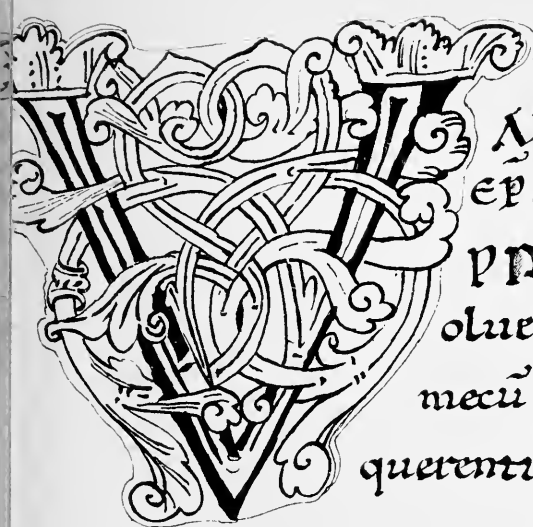 V
A
EP̄
PR
olue
mecū
querenti